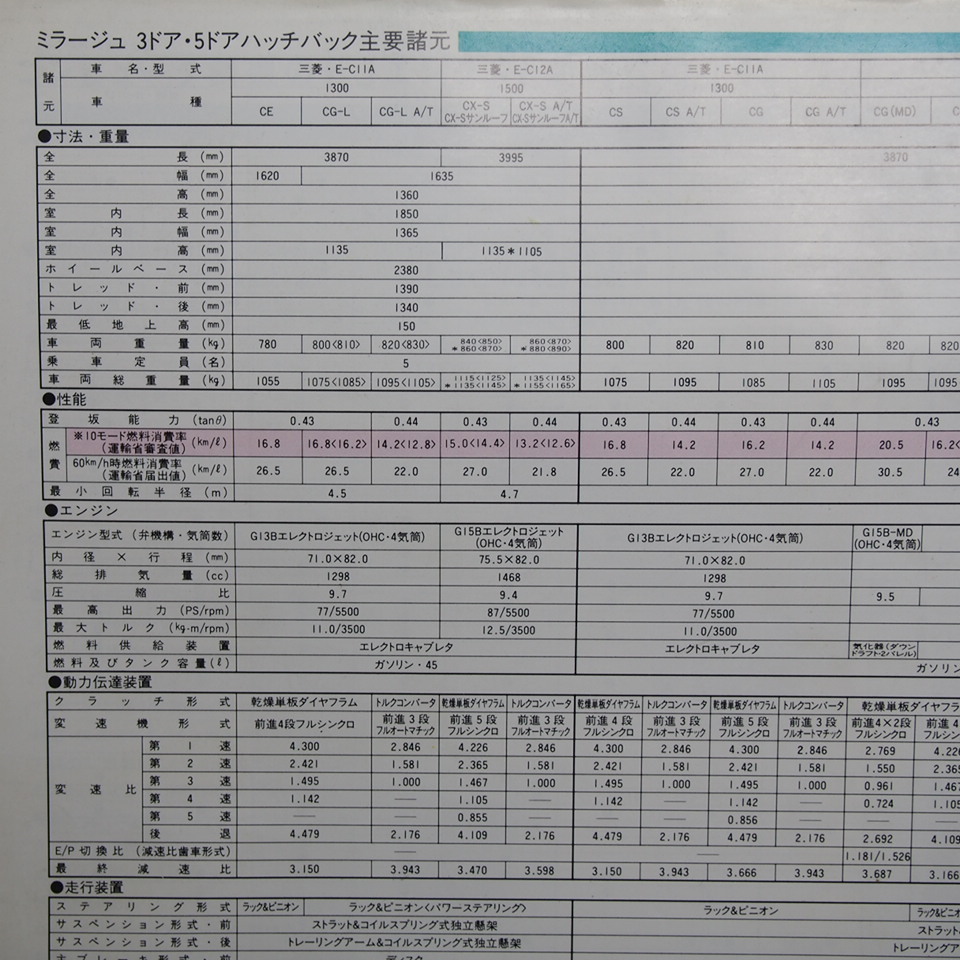 ミラージュ 3ドア・5ドアハッチバック主要諸元
諸元 車名・型式 三菱・E-C11A 三菱・E-C12A 三菱・E-C11A
車種 1300 1500 1300
CE CG-L CG-L A/T CX-S CX-Sサンルーフ CX-S A/T CX-SサンルーフA/T CS CS A/T CG CG A/T CG(MD)
●寸法・重量
全長(mm) 3870 3995 3870
全幅(mm) 1620 1635
全高(mm) 1360
室内長(mm) 1850
室内幅(mm) 1365
室内高(mm) 1135 1135*1105
ホイールベース(mm) 2380
トレッド・前(mm) 1390
トレッド・後(mm) 1340
最低地上高(mm) 150
車両重量(kg) 780 800<810> 820<830> 840<850> *860<870> 860<870> *880<890> 800 820 810 830 820 820
乗車定員(名) 5
車両総重量(kg) 1055 1075<1085> 1095<1105> 1115<1125> *1135<1145> 1135<1145> *1155<1165> 1075 1095 1085 1105 1095 1095
●性能
登坂能力(tanθ) 0.43 0.44 0.43 0.44 0.43 0.44 0.43 0.44 0.43
燃費 ※10モード燃料消費率(運輸省審査値)(km/ℓ) 16.8 16.8<16.2> 14.2<12.8> 15.0<14.4> 13.2<12.6> 16.8 14.2 16.2 14.2 20.5 16.2<
60km/h時燃料消費率(運輸省届出値)(km/ℓ) 26.5 26.5 22.0 27.0 21.8 26.5 22.0 27.0 22.0 30.5 24
最小回転半径(m) 4.5 4.7
●エンジン
エンジン型式(弁機構・気筒数) G13Bエレクトロジェット(OHC・4気筒) G15Bエレクトロジェット(OHC・4気筒) G13Bエレクトロジェット(OHC・4気筒) G15B-MD(OHC・4気筒)
内径×行程(mm) 71.0×82.0 75.5×82.0 71.0×82.0
総排気量(cc) 1298 1468 1298
圧縮比 9.7 9.4 9.7 9.5
最高出力(PS/rpm) 77/5500 87/5500 77/5500
最大トルク(kg-m/rpm) 11.0/3500 12.5/3500 11.0/3500
燃料供給装置 エレクトロキャブレタ エレクトロキャブレタ 気化器(ダウンドラフト・2バレル)
燃料及びタンク容量(ℓ) ガソリン・45 ガソリン
●動力伝達装置
クラッチ形式 乾燥単板ダイヤフラム トルクコンバータ 乾燥単板ダイヤフラム トルクコンバータ 乾燥単板ダイヤフラム トルクコンバータ 乾燥単板ダイヤフラム トルクコンバータ 乾燥単板ダイヤフラ
変速機形式 前進4段フルシンクロ 前進3段フルオートマチック 前進5段フルシンクロ 前進3段フルオートマチック 前進4段フルシンクロ 前進3段フルオートマチック 前進5段フルシンクロ 前進3段フルオートマチック 前進4×2段フルシンクロ 前進4 フルシン
変速比 第1速 4.300 2.846 4.226 2.846 4.300 2.846 4.300 2.846 2.769 4.226
第2速 2.421 1.581 2.365 1.581 2.421 1.581 2.421 1.581 1.550 2.365
第3速 1.495 1.000 1.467 1.000 1.495 1.000 1.495 1.000 0.961 1.467
第4速 1.142 — 1.105 — 1.142 — 1.142 — 0.724 1.105
第5速 — — 0.855 — — — 0.856 — — —
後退 4.479 2.176 4.109 2.176 4.479 2.176 4.479 2.176 2.692 4.109
E/P切換比(減速比歯車形式) — — 1.181/1.526
最終減速比 3.150 3.943 3.470 3.598 3.150 3.943 3.666 3.943 3.687 3.166
●走行装置
ステアリング形式 ラック&ピニオン ラック&ピニオン<パワーステアリング> ラック&ピニオン ラック&ピニ
サスペンション形式・前 ストラット&コイルスプリング式独立懸架 ストラット
サスペンション形式・後 トレーリングアーム&コイルスプリング式独立懸架 トレーリングア
主ブレーキ形式・前 ディスク